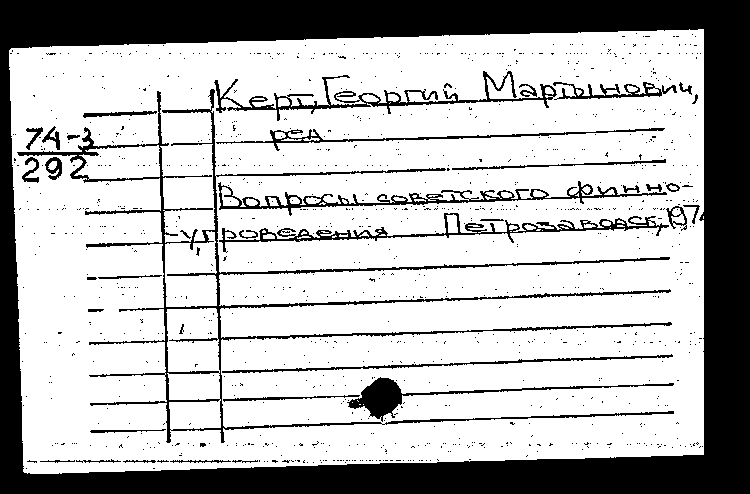 Керт, Георгий Мартынович,
74-3
ред
292
Вопросы советского финно-
-угроведения Петрозаводск, 197